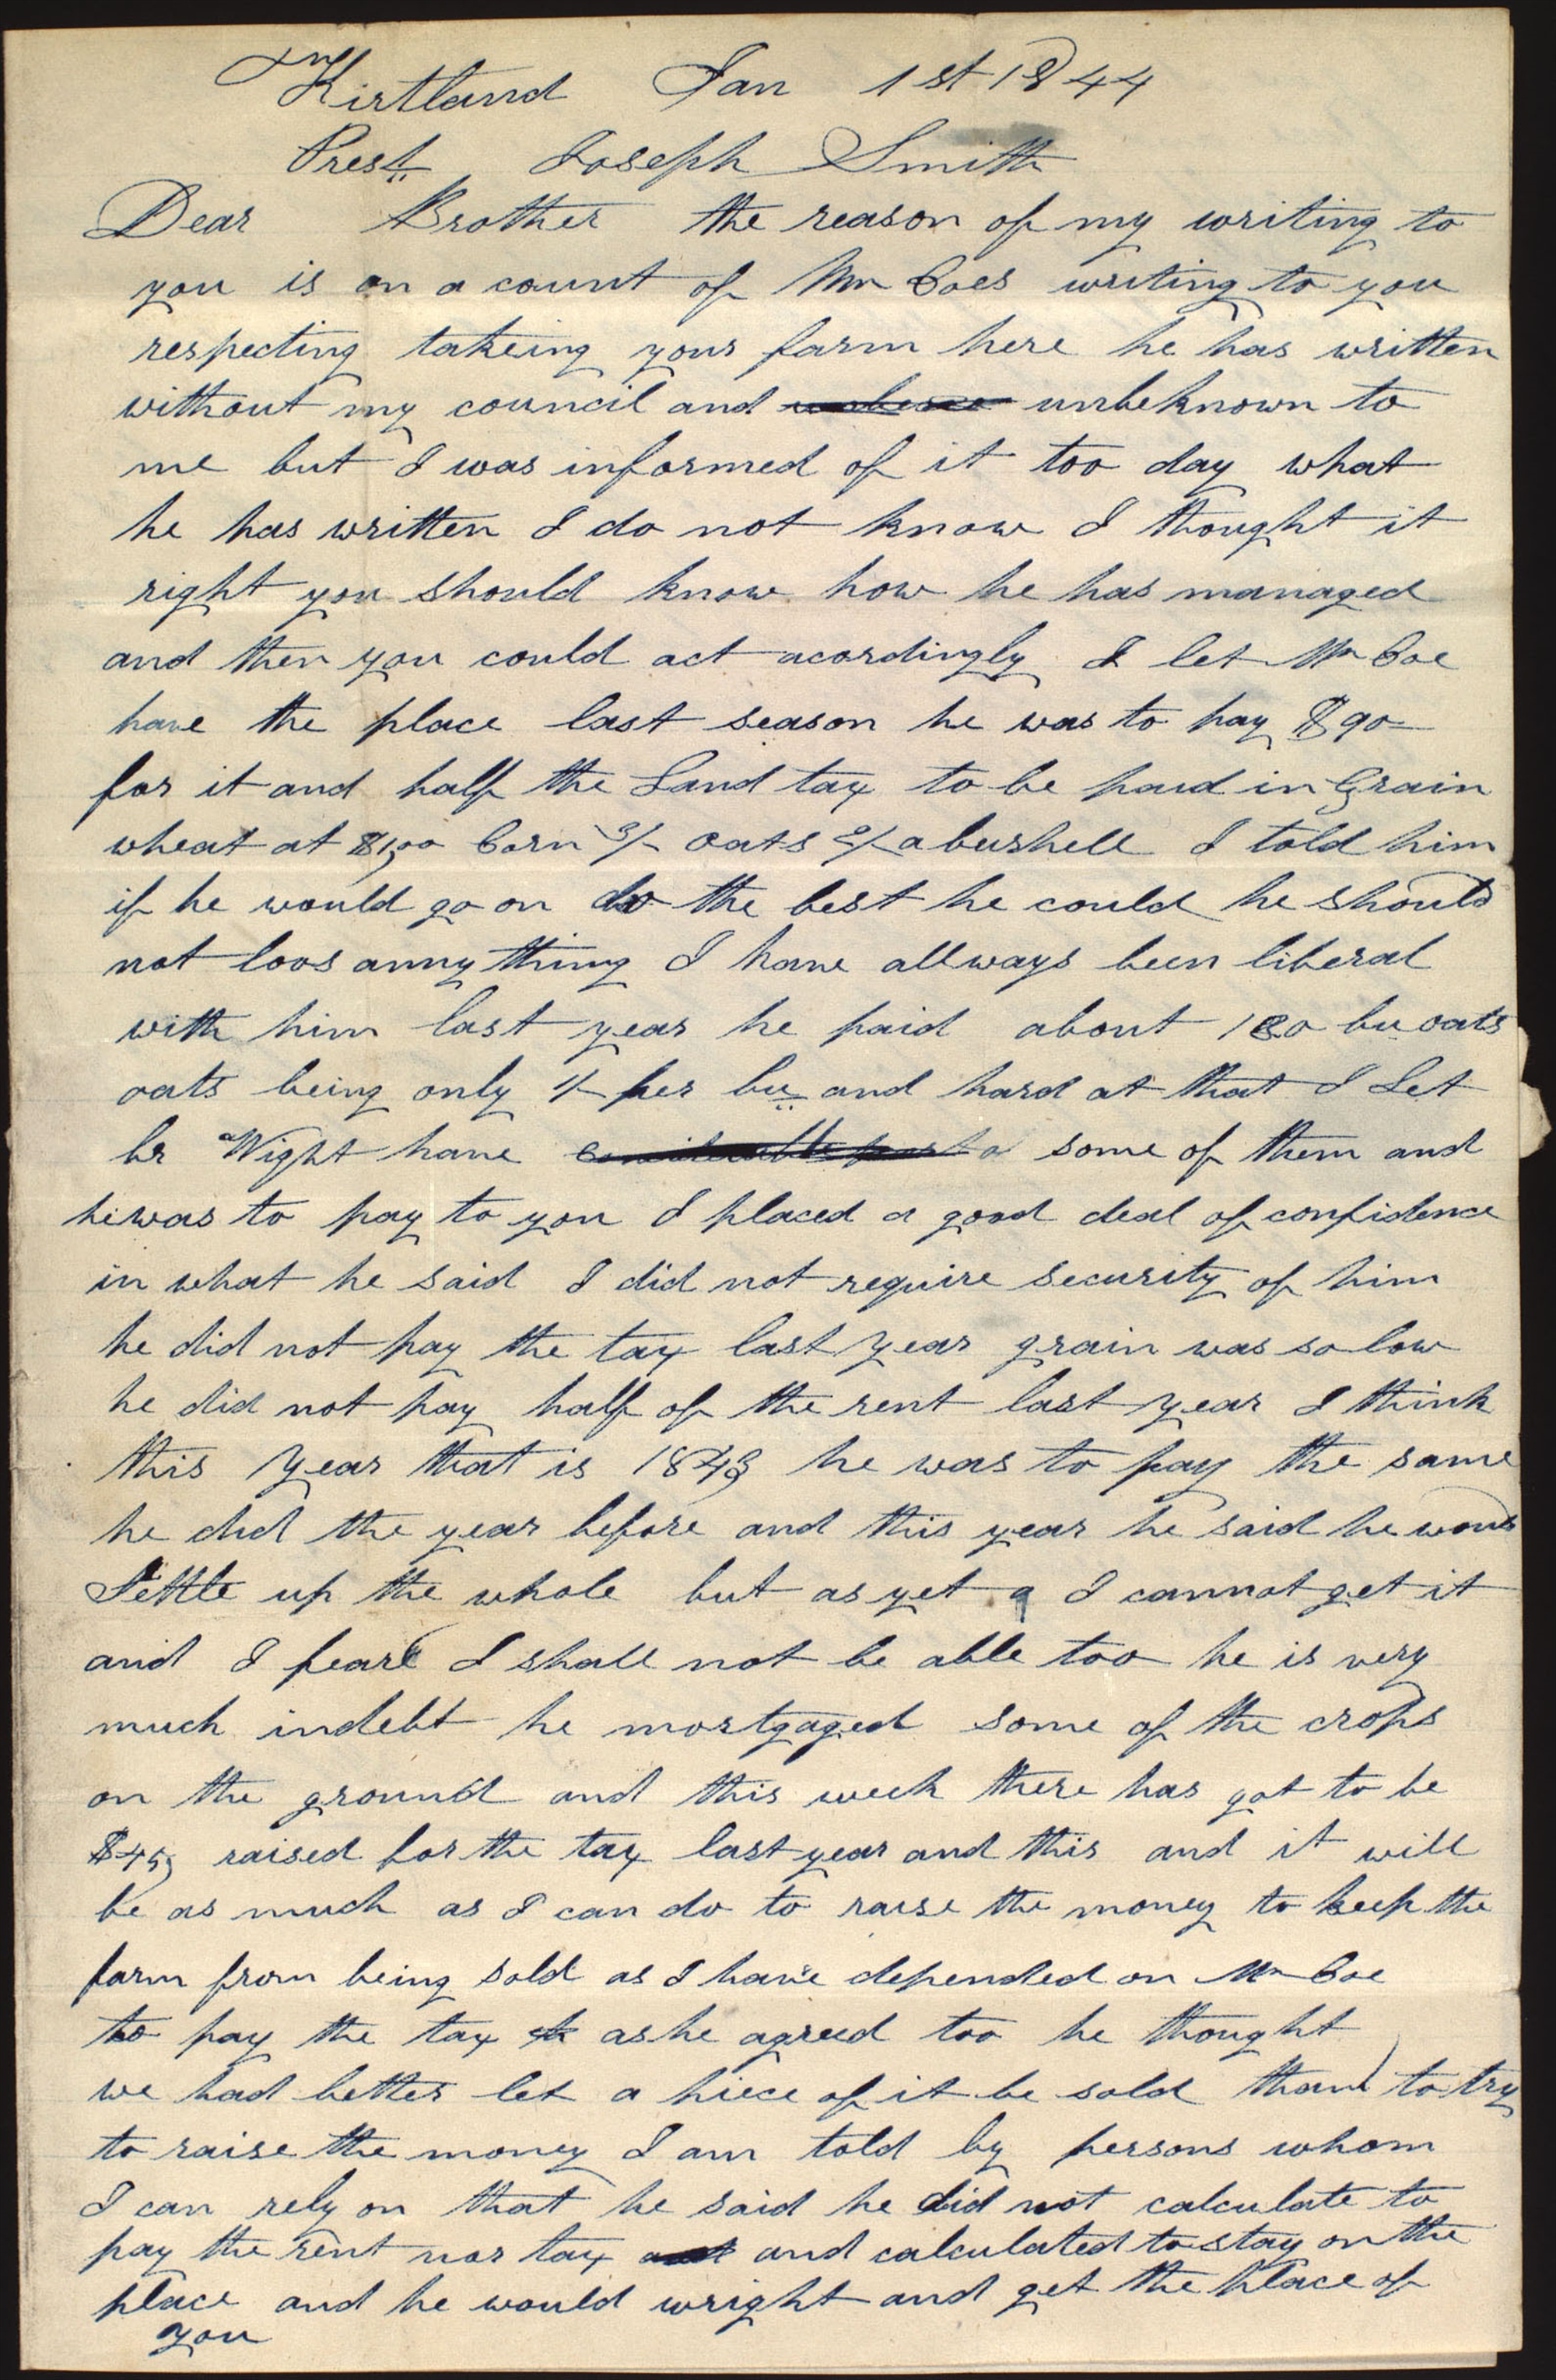 Kirtland Jan 1st 1844
Prest Joseph Smith
Dear Brother the reason of my writing to
you is on a count of Mr Coes writing to you
respecting takeing your farm here he has written
without my council and unbeknown to
me but I was informed of it too day what
he has written I do not know I thought it
right you should know how he has managed
and then you could act acordingly I let Mr Coe
have the place last season he was to pay $90
for it and half the Land tax to be paid in Grain
wheat at $1,00 Corn 3/- oats 2/- a bushell I told him
if he would go on do the best he could he should
not loos anny thing I have allways been liberal
with him last year he paid about 180 bu oats
oats being only 1/- per bu and hard at that I Let
br Wight have some of them and
he was to pay to you I placed a good deal of confidence
in what he said I did not require security of him
he did not pay the tax last year grain was so low
he did not pay half of the rent last year I think
this year that is 1843 he was to pay the same
he did the year before and this year he said he would
Settle up the whole but as yet I cannot get it
and I feare I shall not be able too he is very
much indebt he mortgaged some of the crops
on the ground and this week there has got to be
$45, raised for the tax last year and this and it will
be as much as I can do to raise the money to keep the
farm from being sold as I have depended on Mr Coe
to pay the tax as he agreed too he thought
we had better let a piece of it be sold than to try
to raise the money I am told by persons whom
I can rely on that he said he did not calculate to
pay the rent nor tax and calculated to stay on the
place and he would wright and get the place of
you